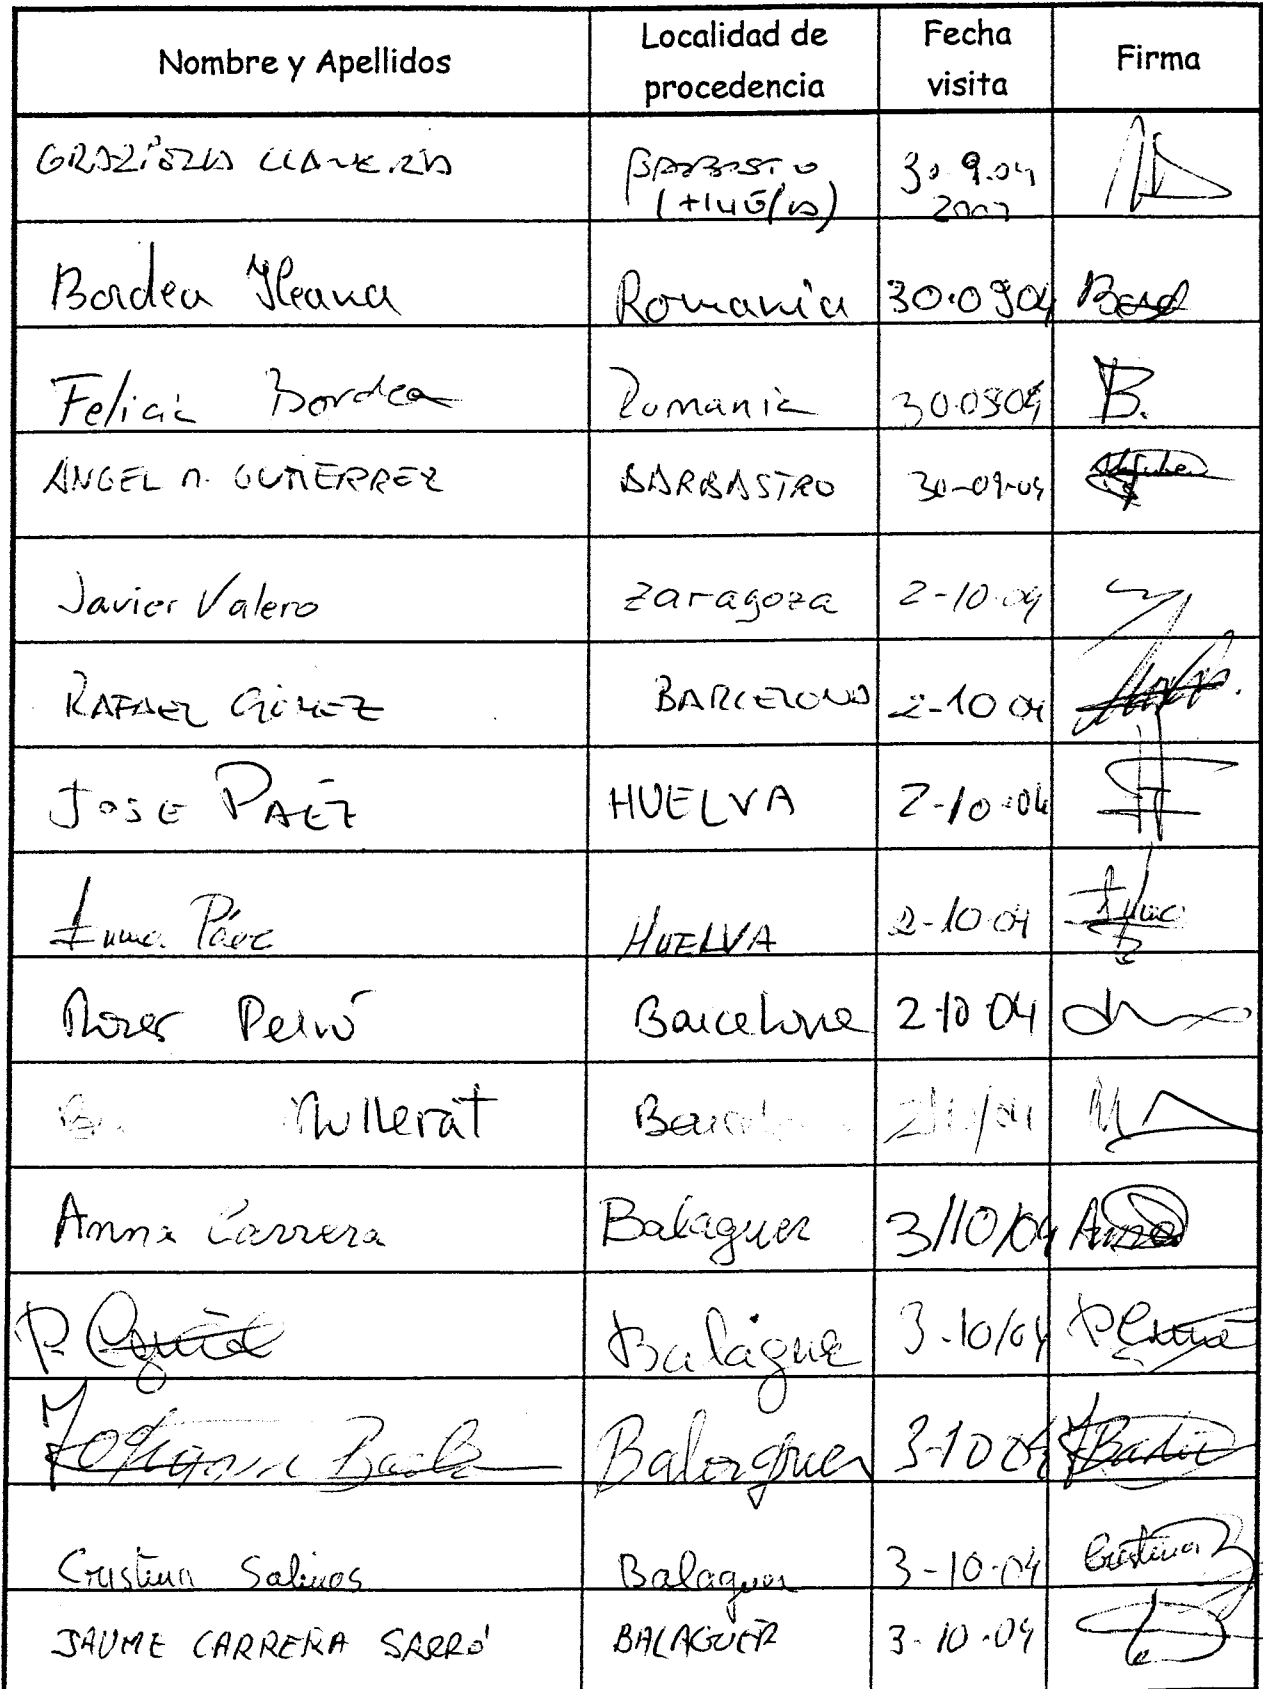 Nombre y Apellidos
Localidad de
procedencia
Fecha
visita
Firma
30.9.04
Bordea Ileana Romania 30.0904 Bord
Felicia Bordea Rumania 300904 B.
ANGEL M. GUTIERREZ BARBASTRO 30-09-04
Javier Valero Zaragoza 2-10-04
RAFAEL GÓMEZ BARCELONA 2-10 04
JOSE PAEZ HUELVA 2-10-04
Inma Páez HUELVA 2-10-04 Inma
Roser Peiró Barcelona 2-10 04
Mullerat 2/10/04
Anna Carrera Balaguer 3/10/04 Anna
P. Balague 3-10/04
Balaguer 3-10 04
Cristina Salinas Balaguer 3-10-04 Cristina
JAUME CARRERA SARRÓ BALAGUER 3-10-04